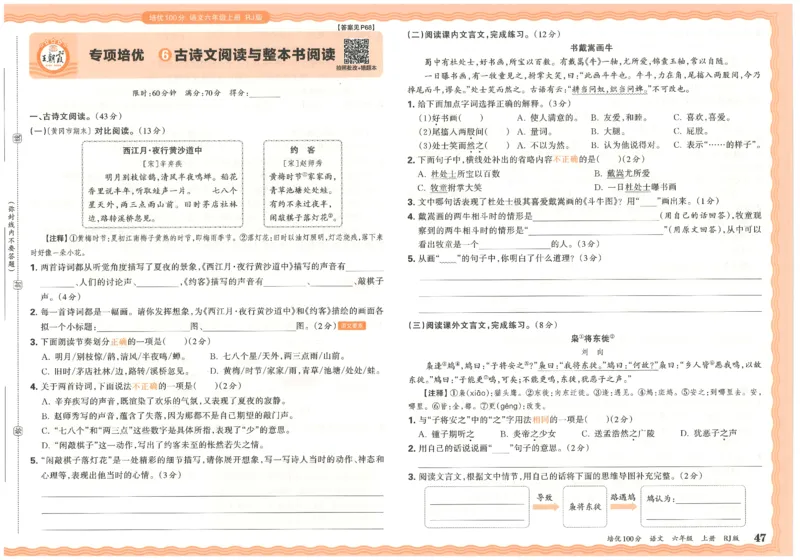 培优100分·语文六年级上册 RJ版
【答案见P68】
王朝霞
专项培优 ⑥古诗文阅读与整本书阅读
拍照批改+错题本
限时:60分钟 满分:70分 得分:
一、古诗文阅读。(43分)
(一)(黄冈市期末)对比阅读。(13分)
西江月·夜行黄沙道中
[宋]辛弃疾
明月别枝惊鹊,清风半夜鸣蝉。稻花
香里说丰年,听取蛙声一片。 七八个
星天外,两三点雨山前。旧时茅店社林
边,路转溪桥忽见。
约 客
[宋]赵师秀
黄梅时节①家家雨,
青草池塘处处蛙。
有约不来过夜半,
闲敲棋子落灯花②。
【注释】①黄梅时节:夏初江南梅子黄熟的时节,即梅雨季节。②落灯花:旧时以油灯照明,灯芯烧残,落下来
时好像一朵小花。
1. 两首诗词都从听觉角度描写了夏夜的景象,《西江月·夜行黄沙道中》描写的声音有
、人们的讨论声、 ,《约客》描写的声音有 、 、敲棋子
声。(4分)
2. 每一首诗词都是一幅画。请你发挥想象,为《西江月·夜行黄沙道中》和《约客》描绘的画面各
拟一个小标题: 图、 图。(2分)
3. 下面朗读节奏划分正确的一项是( )(2分)
A. 明月/别枝惊/鹊,清风/半夜鸣/蝉。 B. 七八个星/天外,两三点雨/山前。
C. 旧时/茅店社林/边,路转/溪桥忽见。 D. 黄梅/时节/家家/雨,青草/池塘/处处/蛙。
4. 关于两首诗词,下面说法不正确的一项是( )(2分)
A. 辛弃疾写的声音,既渲染了欢乐的气氛,又表现了夏夜的寂静。
B. 赵师秀写的声音,蕴含了失落,因为那都不是自己期望的敲门声。
C. “七八个”和“两三点”这些数字是具体所指,表现了“少”的意思。
D. “闲敲棋子”这一动作,写出了约客未至的怅然若失之情。
5. “闲敲棋子落灯花”是一处精彩的细节描写,请你展开想象,写一写诗人当时的动作、神态和
心理等,表现出他当时的心情。(3分)
(弥封线内不要答题)
(二)阅读课内文言文,完成练习。(12分)
书戴嵩画牛
蜀中有杜处士,好书画,所宝以百数。有戴嵩《牛》一轴,尤所爱,锦囊玉轴,常以自随。
一日曝书画,有一牧童见之,拊掌大笑,曰:“此画斗牛也。牛斗,力在角,尾搐入两股间,今乃
掉尾而斗,谬矣。”处士笑而然之。古语有云:“耕当问奴,织当问婢。”不可改也。
1. 给下面加点字词选择正确的解释。(3分)
(1)好书画( ) A. 使人满意的。 B. 友爱,和睦。 C. 喜欢,喜爱。
(2)尾搐入两股间( ) A. 量词。 B. 大腿。 C. 屁股。
(3)处士笑而然之( ) A. 不以为然。 B. 认为他说得对。 C. 表示“……的样子”。
2. 下面句子中,横线处补出的省略内容不正确的是( )(2分)
A. 杜处士所宝以百数 B. 戴嵩尤所爱
C. 牧童拊掌大笑 D. 一日杜处士曝书画
3. 文中哪句话表现了杜处士极其喜爱戴嵩画的《斗牛图》?用“ ”画出来。(1分)
4. 戴嵩画的两牛相斗时的情形是 (用自己的话回答),牧童观
察到的两牛相斗时的情形是“ ”(用原文回答),从中可以
看出牧童是一个 的人。(3分)
5. 从画“ ”的句子中,你明白了什么道理?(3分)
(三)阅读课外文言文,完成练习。(8分)
枭①将东徙②
刘 向
枭逢③鸠④,鸠曰:“子将安之⑤?”枭曰:“我将东徙。”鸠曰:“何故?”枭曰:“乡人皆⑥恶我鸣,以故
东徙。”鸠曰:“子能更⑦鸣,可矣;不能更鸣,东徙,犹恶子之声。”
【注释】①枭(xiāo):猫头鹰。②东徙:向东迁徙。③逢:遇见。④鸠:斑鸠。⑤安之:到哪里去。安,
哪里。⑥皆:全,都。⑦更(gēng):改变。
1. 与“子将安之”中的“之”字用法相同的一项是( )(2分)
A. 锺子期听之 B. 炎帝之少女 C. 送孟浩然之广陵 D. 犹恶子之声
2. 用自己的话说说画“ ”句子的意思。(2分)
3. 阅读文言文,根据文中情节,用自己的话将下面的思维导图补充完整。(2分)
导致
枭将东徙
路遇鸠
鸠认为:
培优100分 语文 六年级 上册 RJ版 47